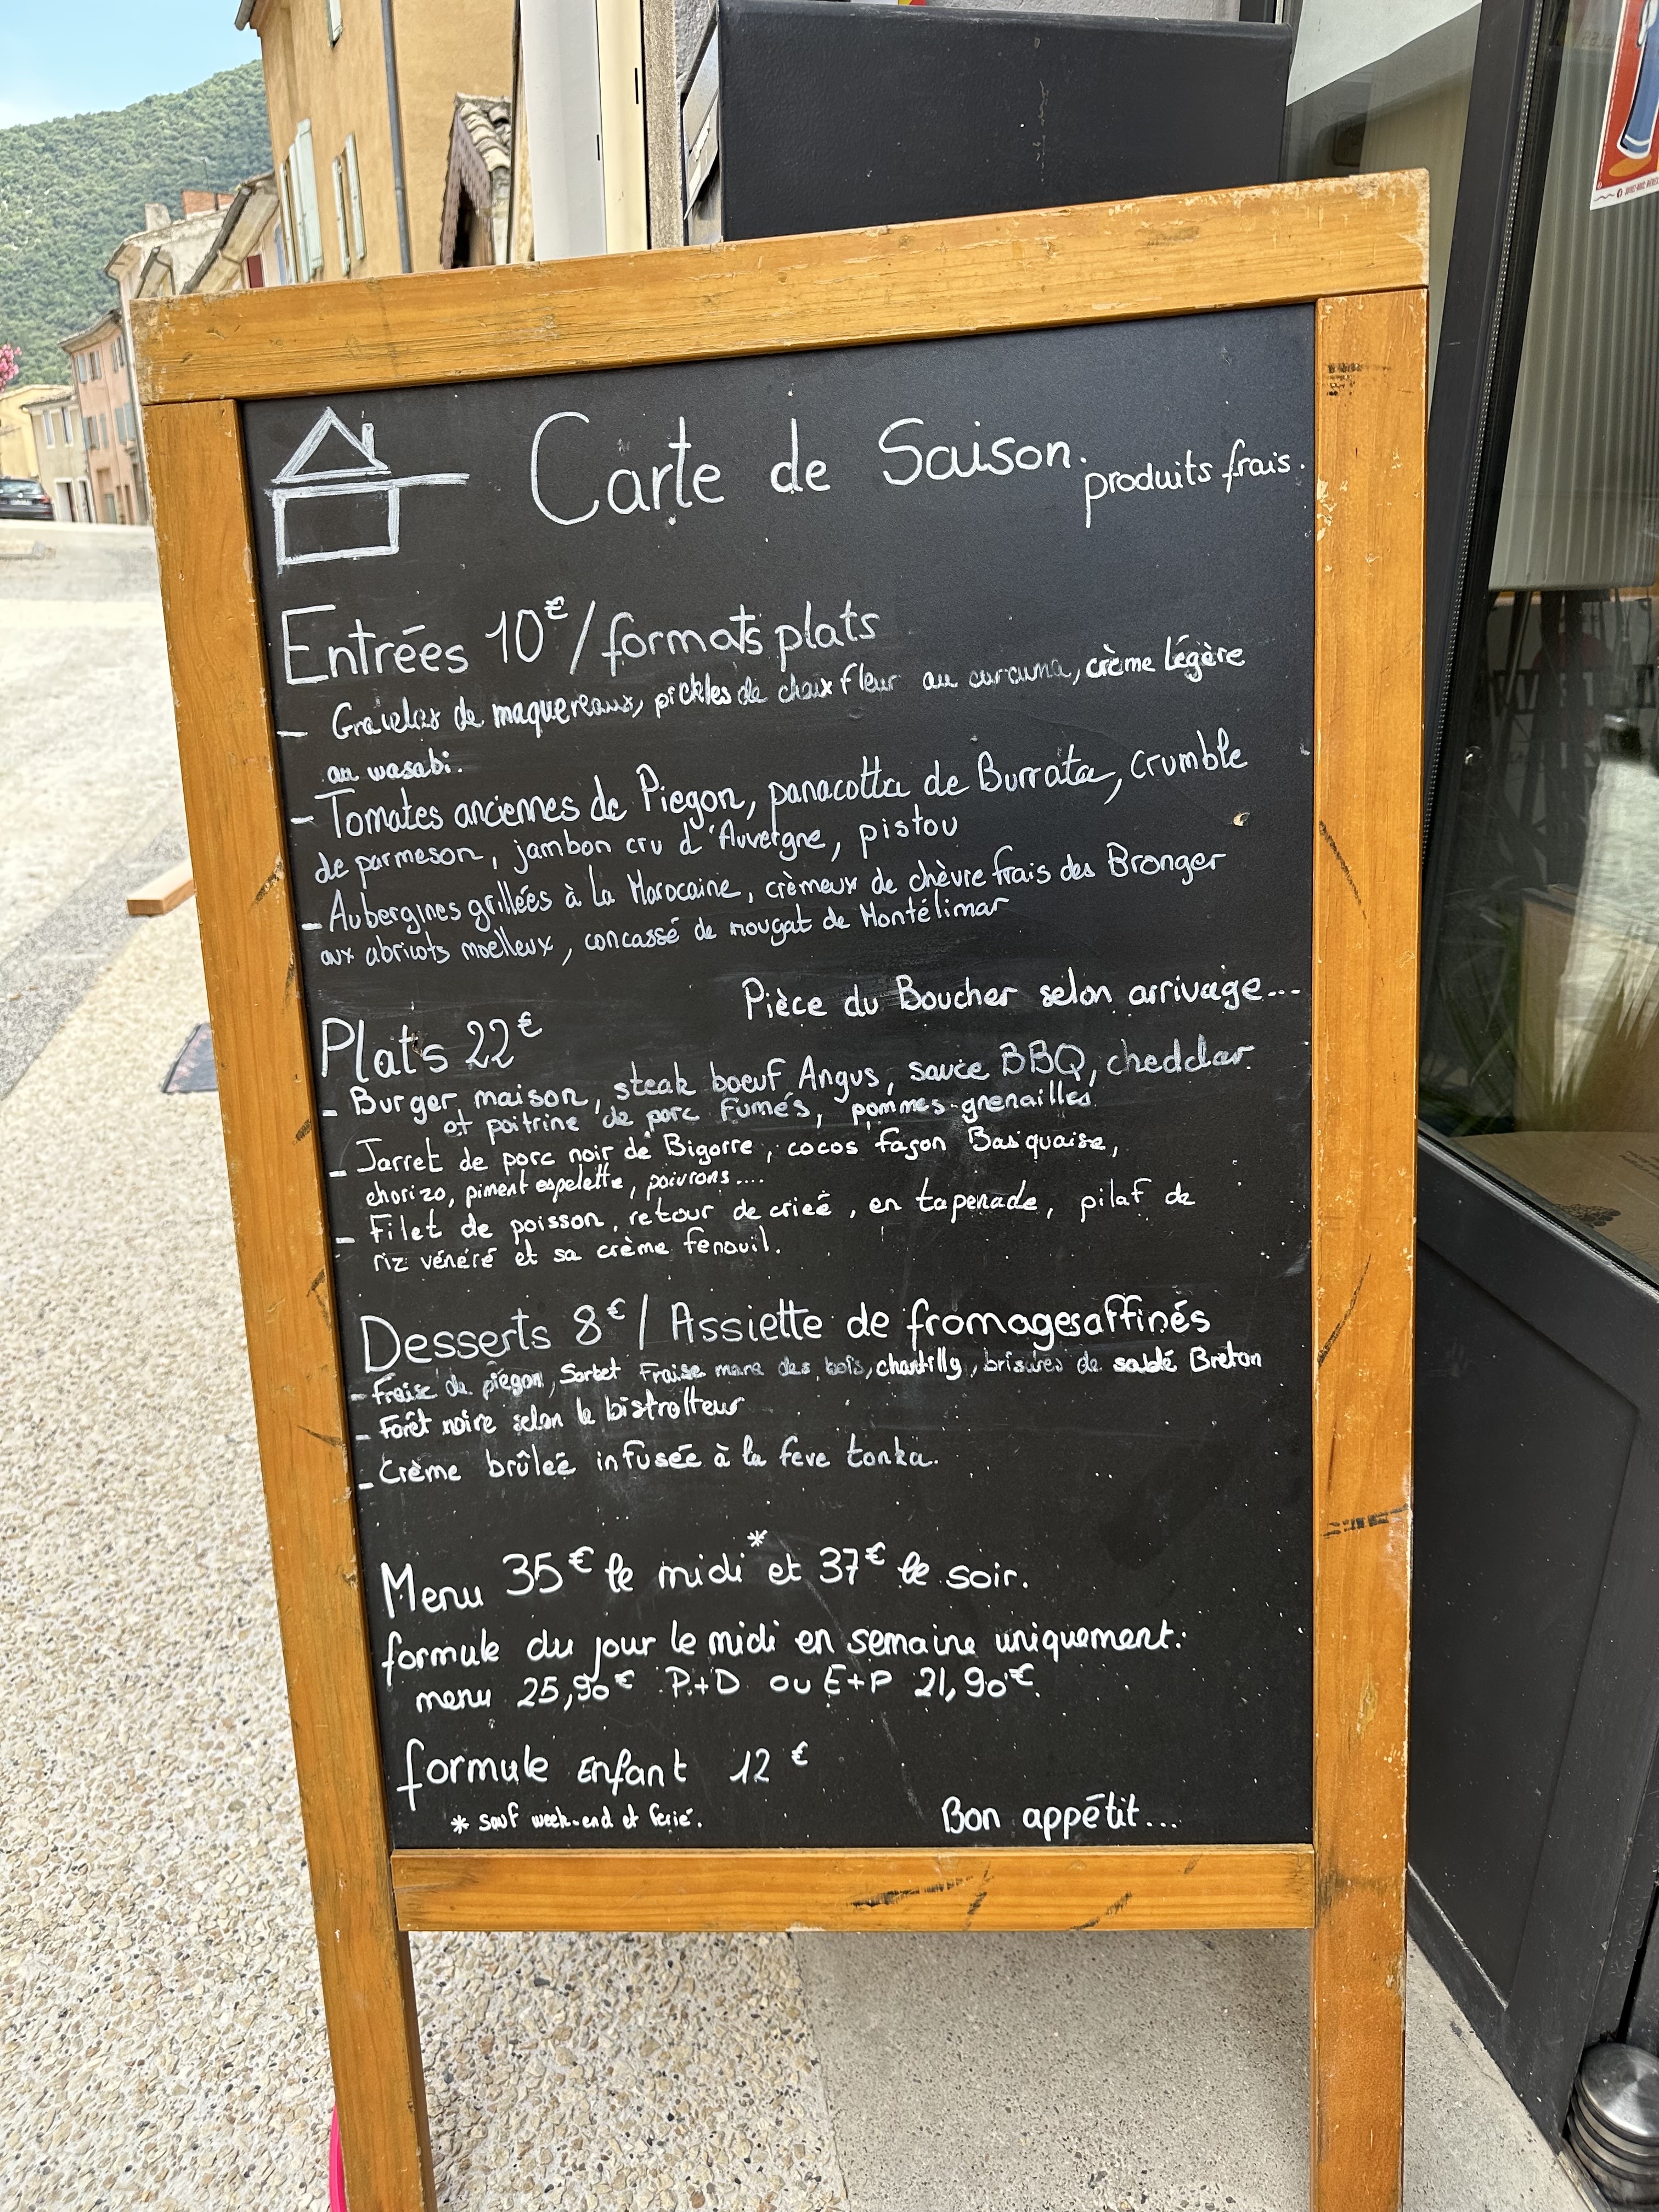 Carte de Saison.
produits frais.
Entrées 10€/formats plats
- Gravelax de maquereaux, pickles de choux fleur au curcuma, crème légère
au wasabi.
- Tomates anciennes de Piegon, panacotta de Burrata, crumble
de parmeson, jambon cru d'Auvergne, pistou
- Aubergines grillées à la Marocaine, crèmeux de chèvre frais des Bronger
aux abricots moelleux, concassé de nougat de Montélimar
Pièce du Boucher selon arrivage...
Plats 22€
- Burger maison, steak boeuf Angus, sauce BBQ, cheddar.
et poitrine de porc fumés, pommes grenailles
- Jarret de porc noir de Bigorre, cocos façon Basquaise,
chorizo, piment espelette, poivrons....
- Filet de poisson, retour de crieé, en tapenade, pilaf de
riz vénéré et sa crème fenouil.
Desserts 8€/ Assiette de fromages affinés
- Fraise de piegon, Sorbet Fraise mara des bois, chantilly, brisures de sablé Breton
- Forêt noire selon le bistrotteur
- Crème brûleé infusée à la feve tonka.
Menu 35€ le midi* et 37€ le soir.
formule du jour le midi en semaine uniquement:
menu 25,90€ P+D ou E+P 21,90€.
formule Enfant 12€
* sauf week-end et ferié.
Bon appétit...